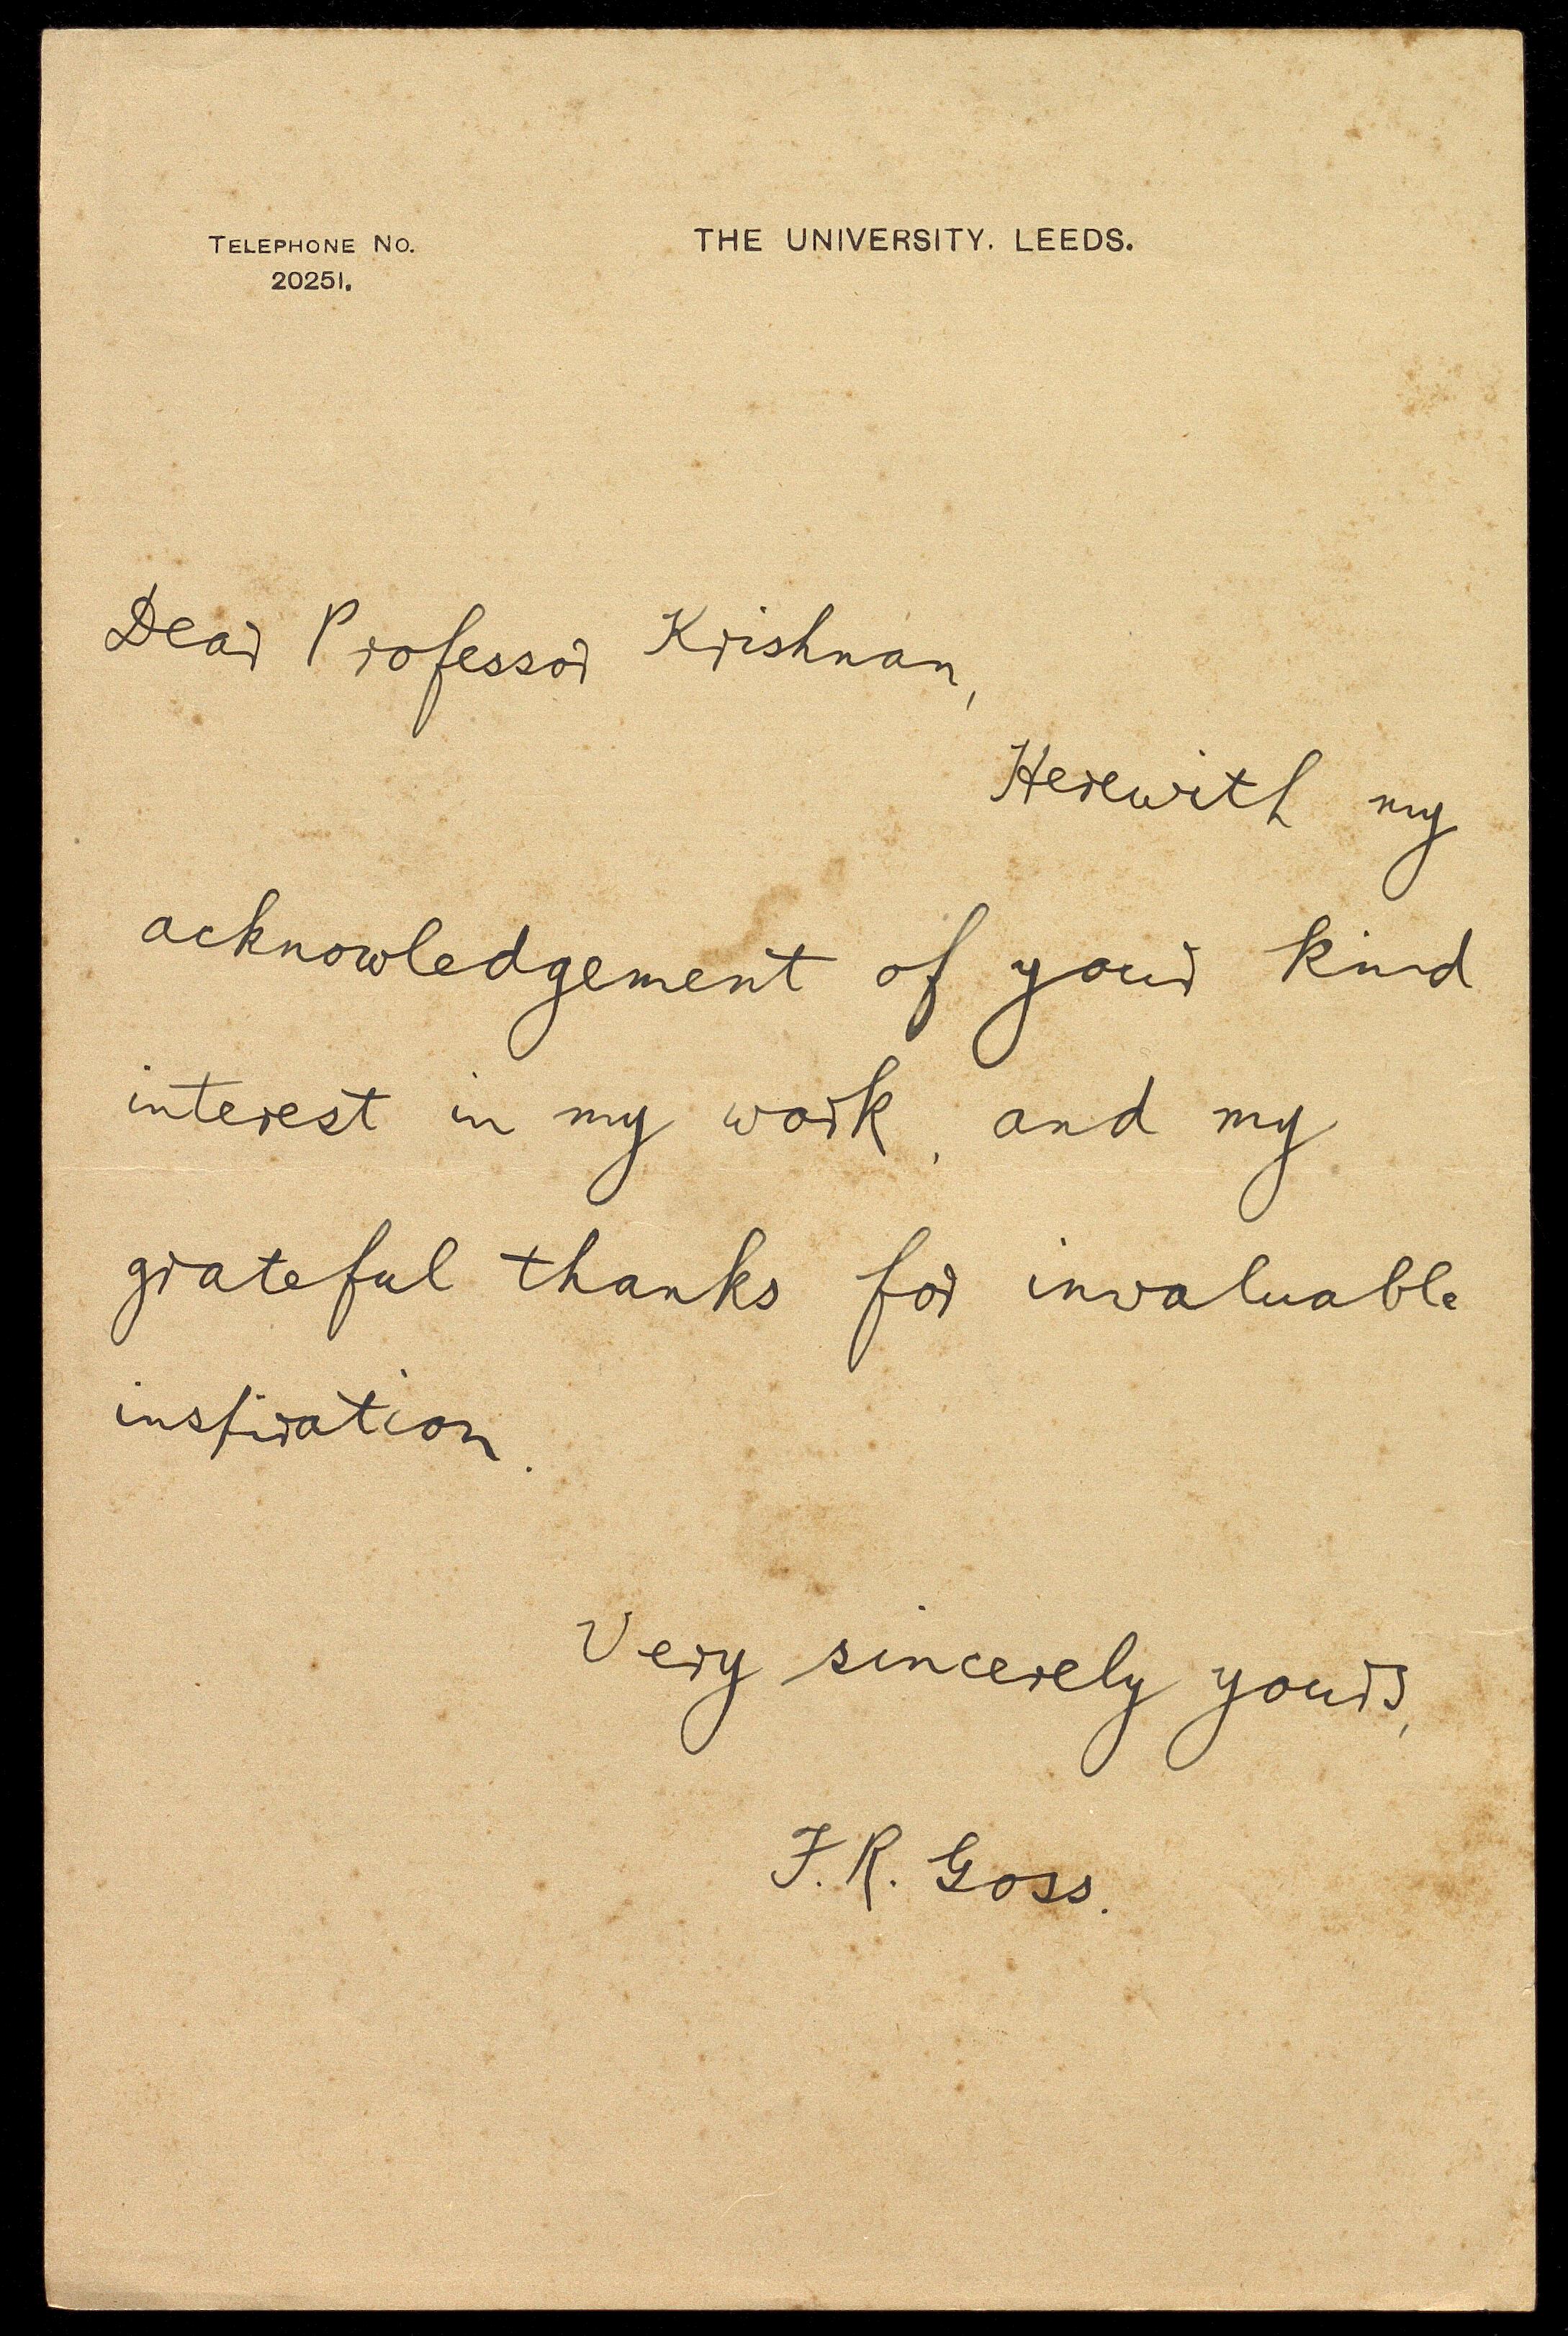 TELEPHONE NO.
20251.
THE UNIVERSITY. LEEDS.
Dear Professor Krishnan,
Herewith my
acknowledgement of your kind
interest in my work, and my
grateful thanks for invaluable
inspiration.
Very sincerely yours,
F. R. Goss.